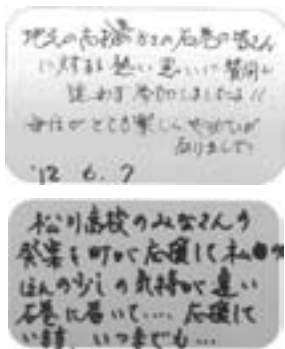 地元の高校生からの石巻の皆さん
に対する熱い思いに賛同し
迷わず参加しました!!
毎日がとても楽しくやりがいが
ありました
'12 6.7
松川高校のみなさんの
発案を町で応援して私の
ほんの少しの気持が遠い
石巻に届いて…応援して
います、いつまでも…